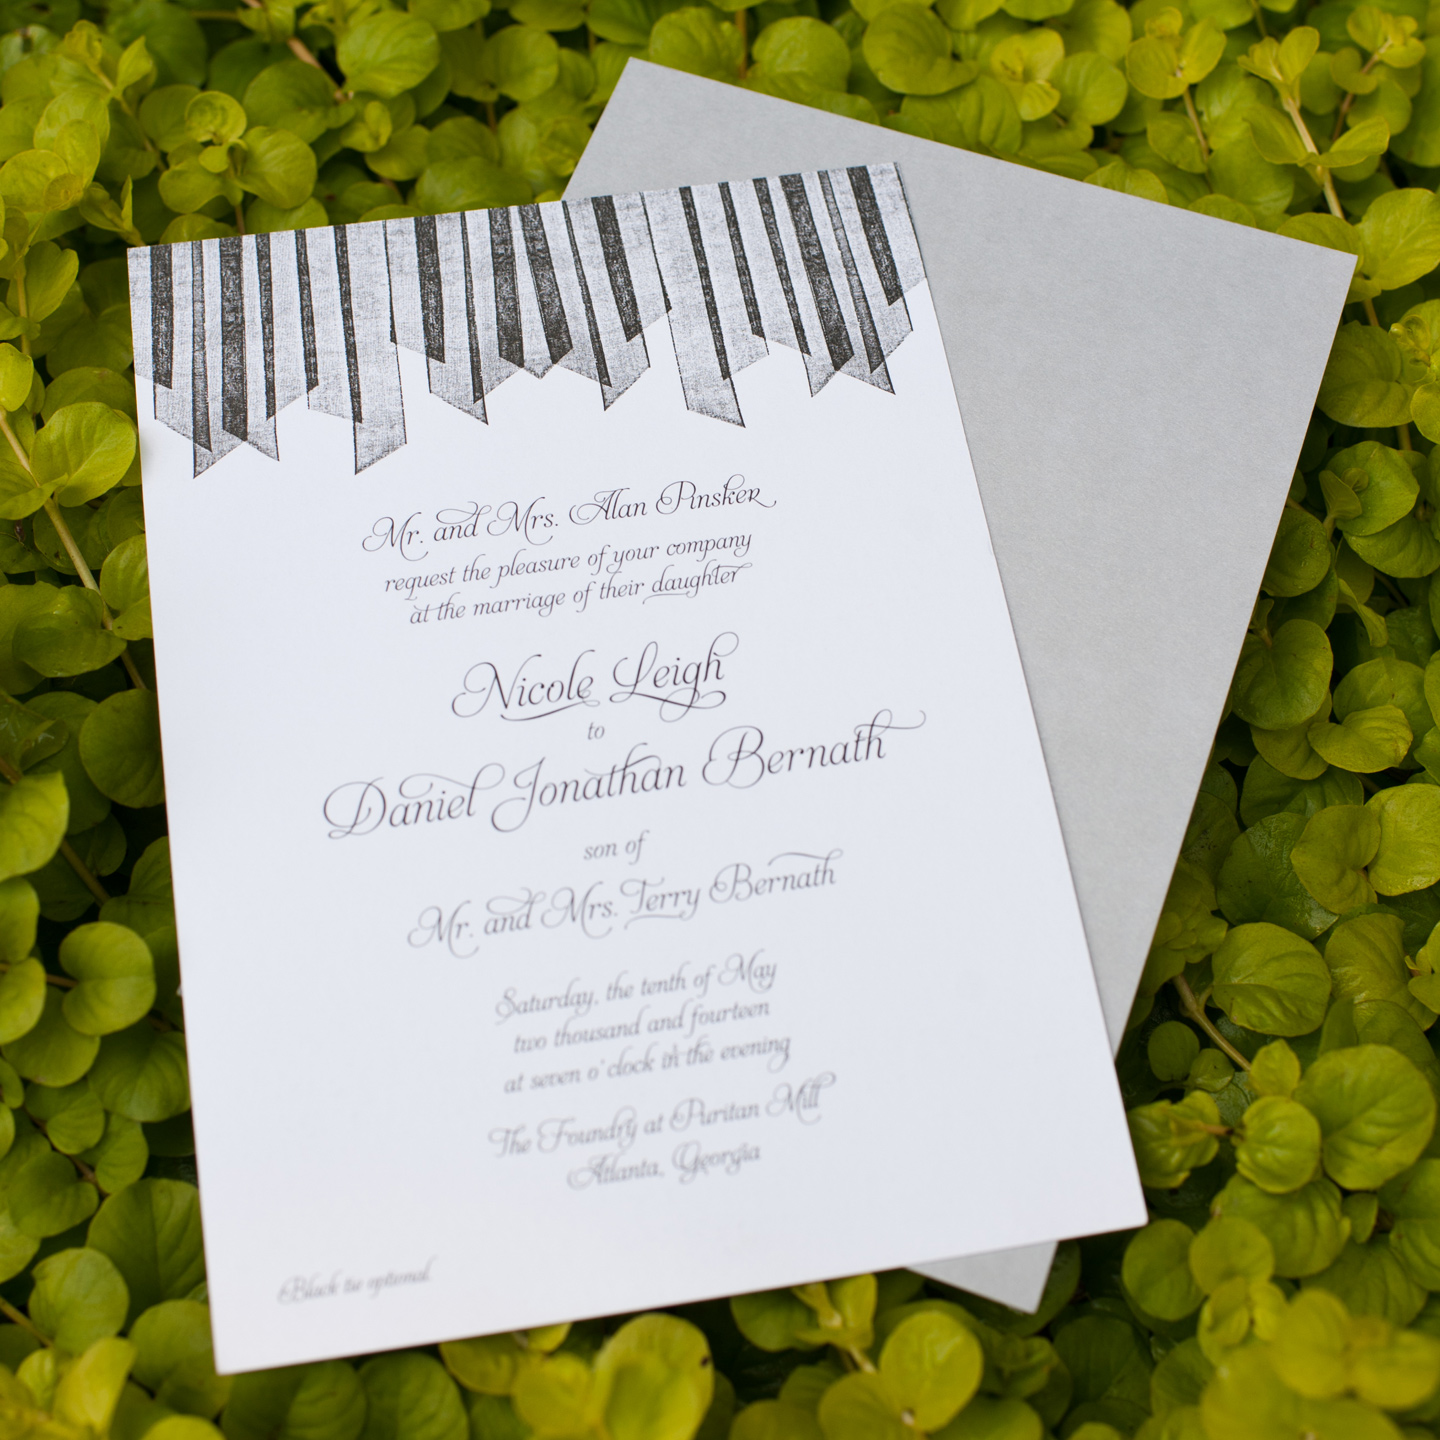 Mr. and Mrs. Alan Pinsker
request the pleasure of your company
at the marriage of their daughter
Nicole Leigh
to
Daniel Jonathan Bernath
son of
Mr. and Mrs. Terry Bernath
Saturday, the tenth of May
two thousand and fourteen
at seven o'clock in the evening
The Foundry at Puritan Mill
Atlanta, Georgia
Black tie optional.